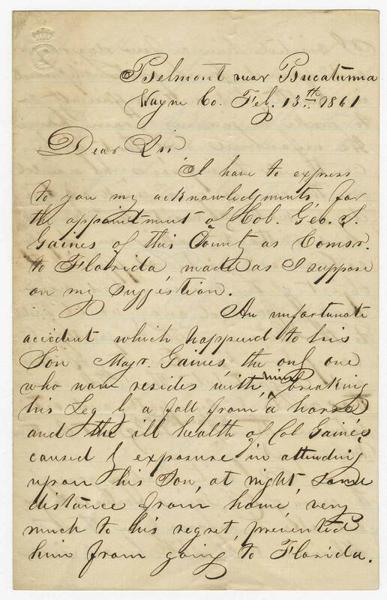 Belmont near Bucatunna
Wayne Co. Feb. 13th 1861
Dear Sir
I have to express
to you my acknowledgments for
the appointment of Col. Geo. S.
Gaines of this County as Comsr.
to Florida, made as I suppose
on my suggestion.
An unfortunate
accident which happend to his
Son Majr. Gaines, the only one
who now resides with him, breaking
his Leg by a fall from a horse
and the ill health of Col Gaines
caused by exposure in attending
upon his Son, at night, some
distance from home, very
much to his regret, prevented
him from going to Florida.